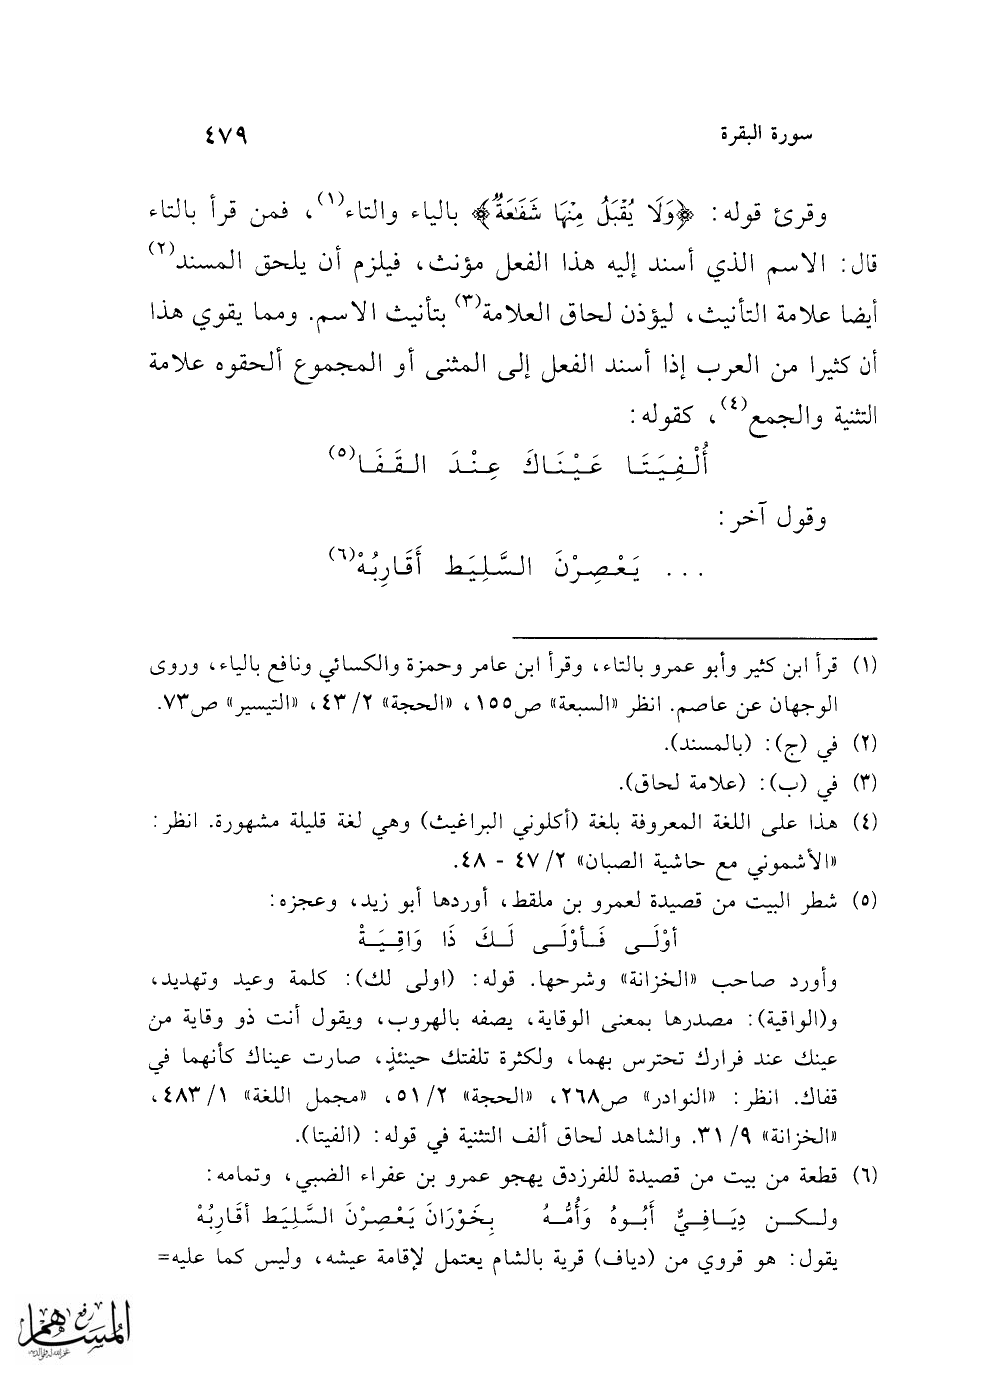 سورة البقرة ٤٧٩
وقرئ قوله: ﴿وَلَا يُقْبَلُ مِنْهَا شَفَٰعَةٌ﴾ بالياء والتاء(١)، فمن قرأ بالتاء
قال: الاسم الذي أسند إليه هذا الفعل مؤنث، فيلزم أن يلحق المسند(٢)
أيضا علامة التأنيث، ليؤذن لحاق العلامة(٣) بتأنيث الاسم. ومما يقوي هذا
أن كثيرا من العرب إذا أسند الفعل إلى المثنى أو المجموع ألحقوه علامة
التثنية والجمع(٤)، كقوله:
أُلْفِيَتَا عَيْنَاكَ عِنْدَ القَفَا(٥)
وقول آخر:
... يَعْصِرْنَ السَّلِيَط أَقَارِبُهْ(٦)
(١) قرأ ابن كثير وأبو عمرو بالتاء، وقرأ ابن عامر وحمزة والكسائي ونافع بالياء، وروى
الوجهان عن عاصم. انظر «السبعة» ص١٥٥، «الحجة» ٢/ ٤٣، «التيسير» ص٧٣.
(٢) في (ج): (بالمسند).
(٣) في (ب): (علامة لحاق).
(٤) هذا على اللغة المعروفة بلغة (أكلوني البراغيث) وهي لغة قليلة مشهورة. انظر:
«الأشموني مع حاشية الصبان» ٢/ ٤٧ - ٤٨.
(٥) شطر البيت من قصيدة لعمرو بن ملقط، أوردها أبو زيد، وعجزه:
أوْلَى فَأوْلَى لَكَ ذَا وَاقِيَةْ
وأورد صاحب «الخزانة» وشرحها. قوله: (اولى لك): كلمة وعيد وتهديد،
و(الواقية): مصدرها بمعنى الوقاية، يصفه بالهروب، ويقول أنت ذو وقاية من
عينك عند فرارك تحترس بهما، ولكثرة تلفتك حينئذٍ، صارت عيناك كأنهما في
قفاك. انظر: «النوادر» ص٢٦٨، «الحجة» ٢/ ٥١، «مجمل اللغة» ١/ ٤٨٣،
«الخزانة» ٩/ ٣١. والشاهد لحاق ألف التثنية في قوله: (الفيتا).
(٦) قطعة من بيت من قصيدة للفرزدق يهجو عمرو بن عفراء الضبي، وتمامه:
ولكن دِيَافِيٌّ أَبُوهُ وَأُمُّهُ بِحَوْرَانَ يَعْصِرْنَ السَّلِيَط أقَارِبُهْ
يقول: هو قروي من (دياف) قرية بالشام يعتمل لإقامة عيشه، وليس كما عليه=
رفع
المساهم